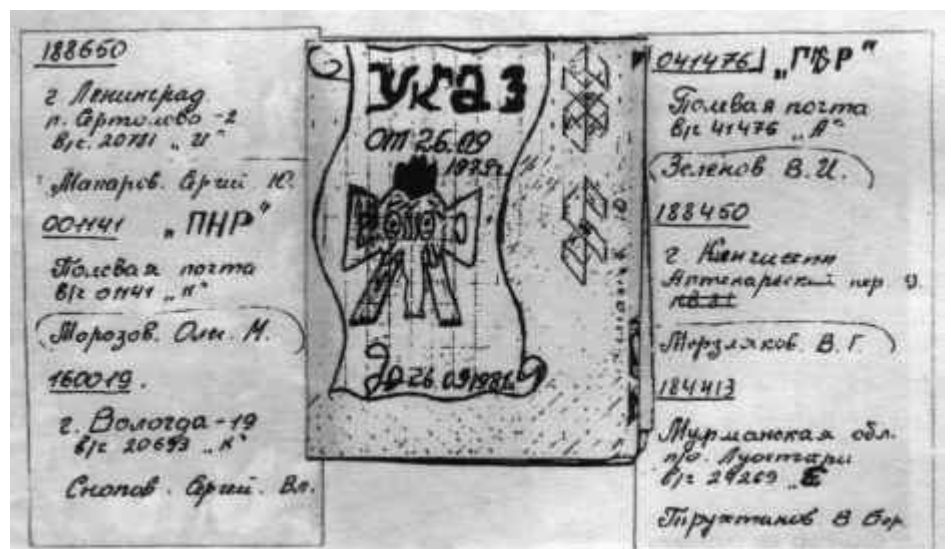 188650
г Ленинград
п. Сертолово-2
в/ч. 20781 „И“
Макаров. Сергий Ю.
001141 „ПНР“
Полевая почта
в/ч 01141 „К“
Морозов. Оли. М.
160019.
г. Вологда-19
в/ч 20693 „К“
Снопов. Сергий. Вл.
Указ
от 26.09
1979г.
До 26.09 1981г
041476 „ГДР“
Полевая почта
в/ч 41476 „А“
Зеленов В.И.
188450
г Кингисепп
Аптекарский пер 9.
Мерзляков. В. Г.
184413
Мурманская обл.
п/о. Луостари
в/ч 29269 „Е
В Бор.